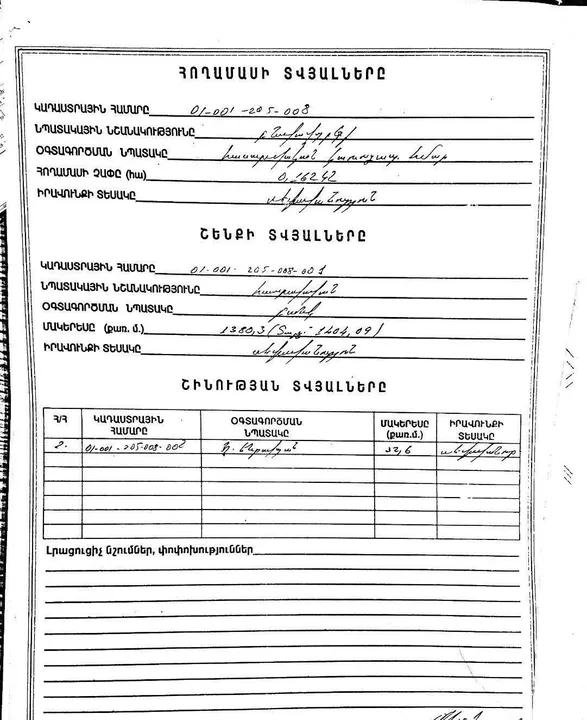 ՀՈՂԱՄԱՍԻ ՏՎՅԱԼՆԵՐԸ
ԿԱԴԱՍՏՐԱՅԻՆ ՀԱՄԱՐԸ 01-001-205-008
ՆՊԱՏԱԿԱՅԻՆ ՆՇԱՆԱԿՈՒԹՅՈՒՆԸ
ՕԳՏԱԳՈՐԾՄԱՆ ՆՊԱՏԱԿԸ հասարակական կառուցապ. համար
ՀՈՂԱՄԱՍԻ ՉԱՓԸ (հա)
ԻՐԱՎՈՒՆՔԻ ՏԵՍԱԿԸ սեփականություն
ՇԵՆՔԻ ՏՎՅԱԼՆԵՐԸ
ԿԱԴԱՍՏՐԱՅԻՆ ՀԱՄԱՐԸ 01-001-205-008-001
ՆՊԱՏԱԿԱՅԻՆ ՆՇԱՆԱԿՈՒԹՅՈՒՆԸ հասարակական
ՕԳՏԱԳՈՐԾՄԱՆ ՆՊԱՏԱԿԸ
ՄԱԿԵՐԵՍԸ (քառ. մ.) 1380,3 1404,09)
ԻՐԱՎՈՒՆՔԻ ՏԵՍԱԿԸ սեփականություն
ՇԻՆՈՒԹՅԱՆ ՏՎՅԱԼՆԵՐԸ
Հ/Հ ԿԱԴԱՍՏՐԱՅԻՆ ՀԱՄԱՐԸ ՕԳՏԱԳՈՐԾՄԱՆ ՆՊԱՏԱԿԸ ՄԱԿԵՐԵՍԸ (քառ.մ.) ԻՐԱՎՈՒՆՔԻ ՏԵՍԱԿԸ
2. 01-001-205-008-002 32,6
Լրացուցիչ նշումներ, փոփոխություններ